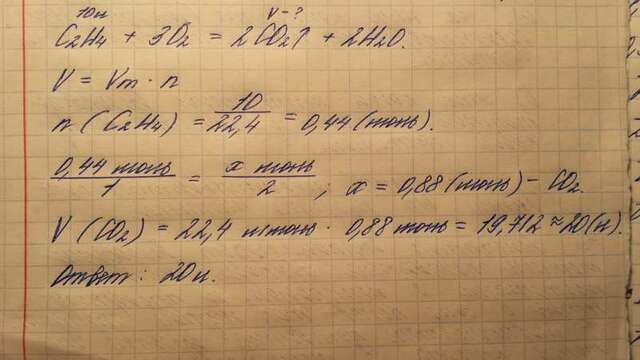 10л V - ?
C2H4 + 3O2 = 2CO2↑ + 2H2O.
V = Vm · n
n (C2H4) = 10/22,4 = 0,44 (моль).
0,44 моль/1 = x моль/2 ; x = 0,88 (моль) – CO2
V (CO2) = 22,4 л/моль · 0,88 моль = 19,712 ≈ 20 (л).
Ответ: 20л.